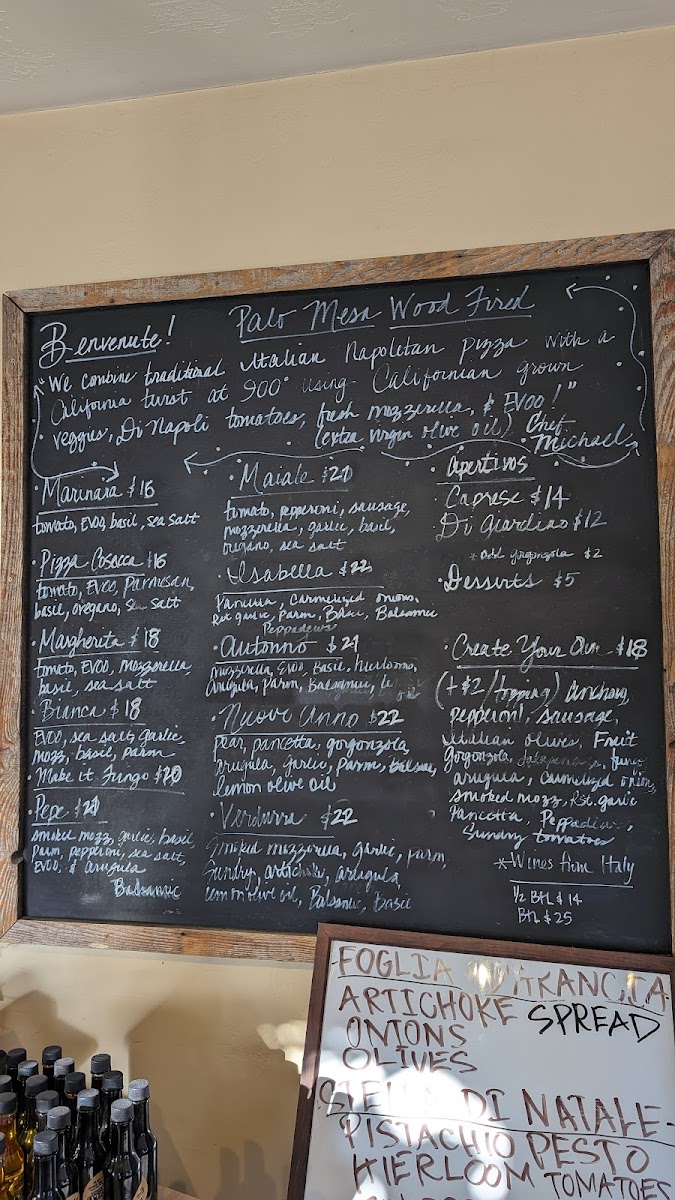 Benvenute!
Palo Mesa Wood Fired
"We combine traditional Italian Napoletan pizza with a
California twist at 900° using Californian grown
veggies, Di Napoli tomatoes, fresh mozzerella, & EVOO!"
(extra virgin olive oil) Chef
Michael
Marinara $16
tomato, EVOO, basil, sea salt
Pizza Cosacca $16
tomato, EVOO, Parmesan,
basil, oregano, sea salt
Margherita $18
tomato, EVOO, mozzerella,
basil, sea salt
Bianca $18
EVOO, sea salt, garlic,
mozz, basil, parm
Make it Fungo $20
Pepe $21
smoked mozz, garlic, basil,
parm, pepperoni, sea salt,
EVOO, & arugula
Balsamic
Maiale $20
tomato, pepperoni, sausage,
mozzerella, garlic, basil,
oregano, sea salt
Isabella $22
Pancetta, carmelized onions,
Rst garlic, Parm, Basic, Balsamic
Peppadews
Autunno $21
mozzerella, EVOO, Basil, heirlooms,
Arugula, Parm, Balsamic,
Nuovo Anno $22
pear, pancetta, gorgonzola,
arugula, garlic, parm, balsam,
lemon olive oil
Verdurra $22
Smoked mozzerella, garlic, parm,
Sundry, artichoke, arugula,
lemon olive oil, Balsamic, Basic
Apertivos
Caprese $14
Di Giardino $12
* add gorgonzola $2
Desserts $5
Create Your Own $18
(+$2/topping) Anchovy,
pepperoni, sausage,
Italian olives, Fruit
gorgonzola, Jalapenos, fungo,
arugula, carmelized onion,
smoked mozz, Rst. garlic
Pancetta, Peppadews,
Sundry tomatoes
* Wines from Italy
1/2 Btl $14
Btl $25
FOGLIA D'ARANCIA
ARTICHOKE SPREAD
ONIONS
OLIVES
STELLA DI NATALE -
PISTACHIO PESTO
HIERLOOM TOMATOES